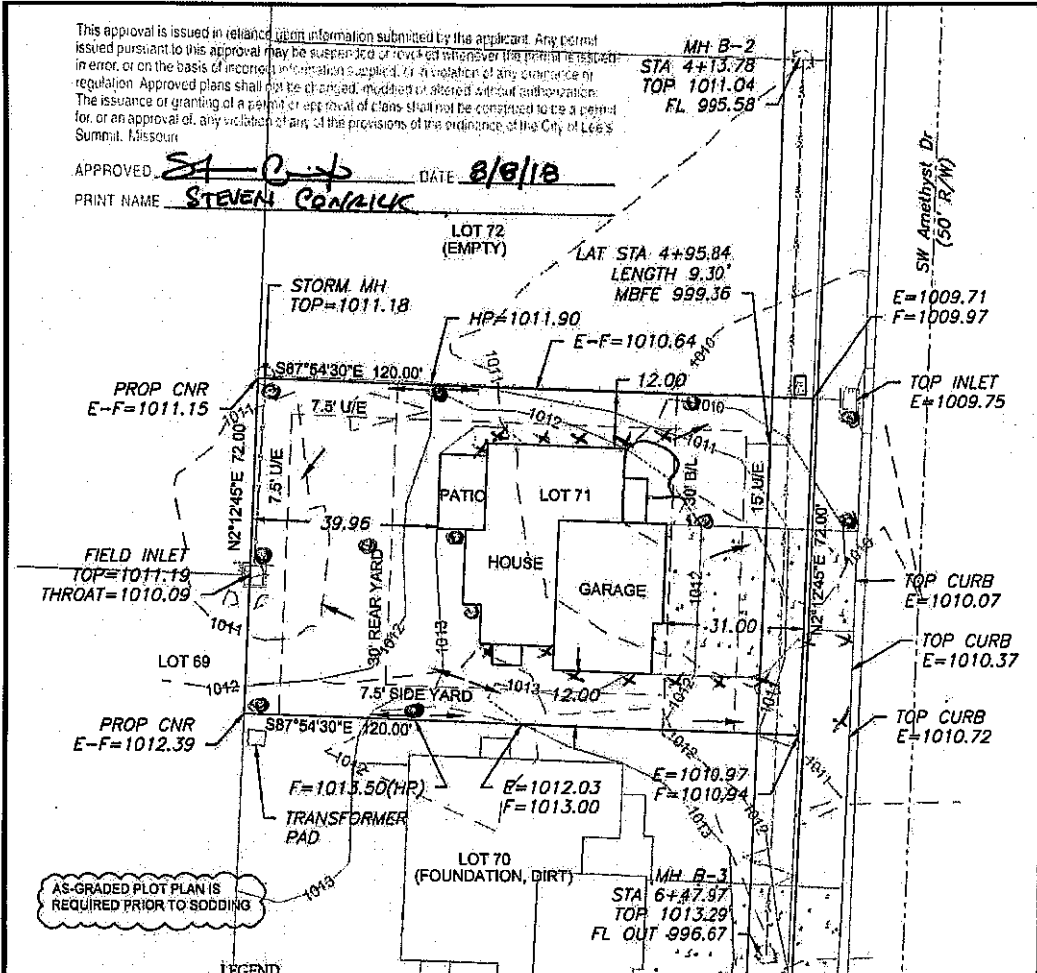 This approval is issued in reliance upon information submitted by the applicant. Any permit
issued pursuant to this approval may be suspended or revoked whenever the permit is issued
in error, or on the basis of incorrect information supplied, or in violation of any ordinance or
regulation. Approved plans shall not be changed, modified or altered without authorization.
The issuance or granting of a permit or approval of plans shall not be construed to be a permit
for, or an approval of, any violation of any of the provisions of the ordinance of the City of Lee's
Summit, Missouri
APPROVED DATE 8/8/18
PRINT NAME STEVEN
MH B-2
STA 4+13.78
TOP 1011.04
FL 995.58
SW Amethyst Dr
(50' R/W)
LOT 72
(EMPTY)
LAT STA 4+95.84
LENGTH 9.30'
MBFE 999.36
STORM MH
TOP=1011.18
HP=1011.90
E-F=1010.64
E=1009.71
F=1009.97
PROP CNR
E-F=1011.15
S87°54'30"E 120.00'
12.00
TOP INLET
E=1009.75
1011
1010
1011
7.5' U/E
1012
1010
1011
7.5' U/E
N2°12'45"E 72.00'
PATIO
LOT 71
30' B/L
15' U/E
39.96
HOUSE
GARAGE
1012
1010
FIELD INLET
TOP=1011.19
THROAT=1010.09
30' REAR YARD
31.00
N2°12'45"E 72.00'
TOP CURB
E=1010.07
1011
1012
1013
TOP CURB
E=1010.37
LOT 69
1012
1013
12.00
1012
1011
7.5' SIDE YARD
PROP CNR
E-F=1012.39
S87°54'30"E 120.00'
TOP CURB
E=1010.72
1012
1012
1011
F=1013.50(HP)
E=1012.03
F=1013.00
E=1010.97
F=1010.94
TRANSFORMER
PAD
1013
1012
LOT 70
(FOUNDATION, DIRT)
1013
MH B-3
STA 6+47.97
TOP 1013.29
FL OUT 996.67
AS-GRADED PLOT PLAN IS
REQUIRED PRIOR TO SODDING
LEGEND